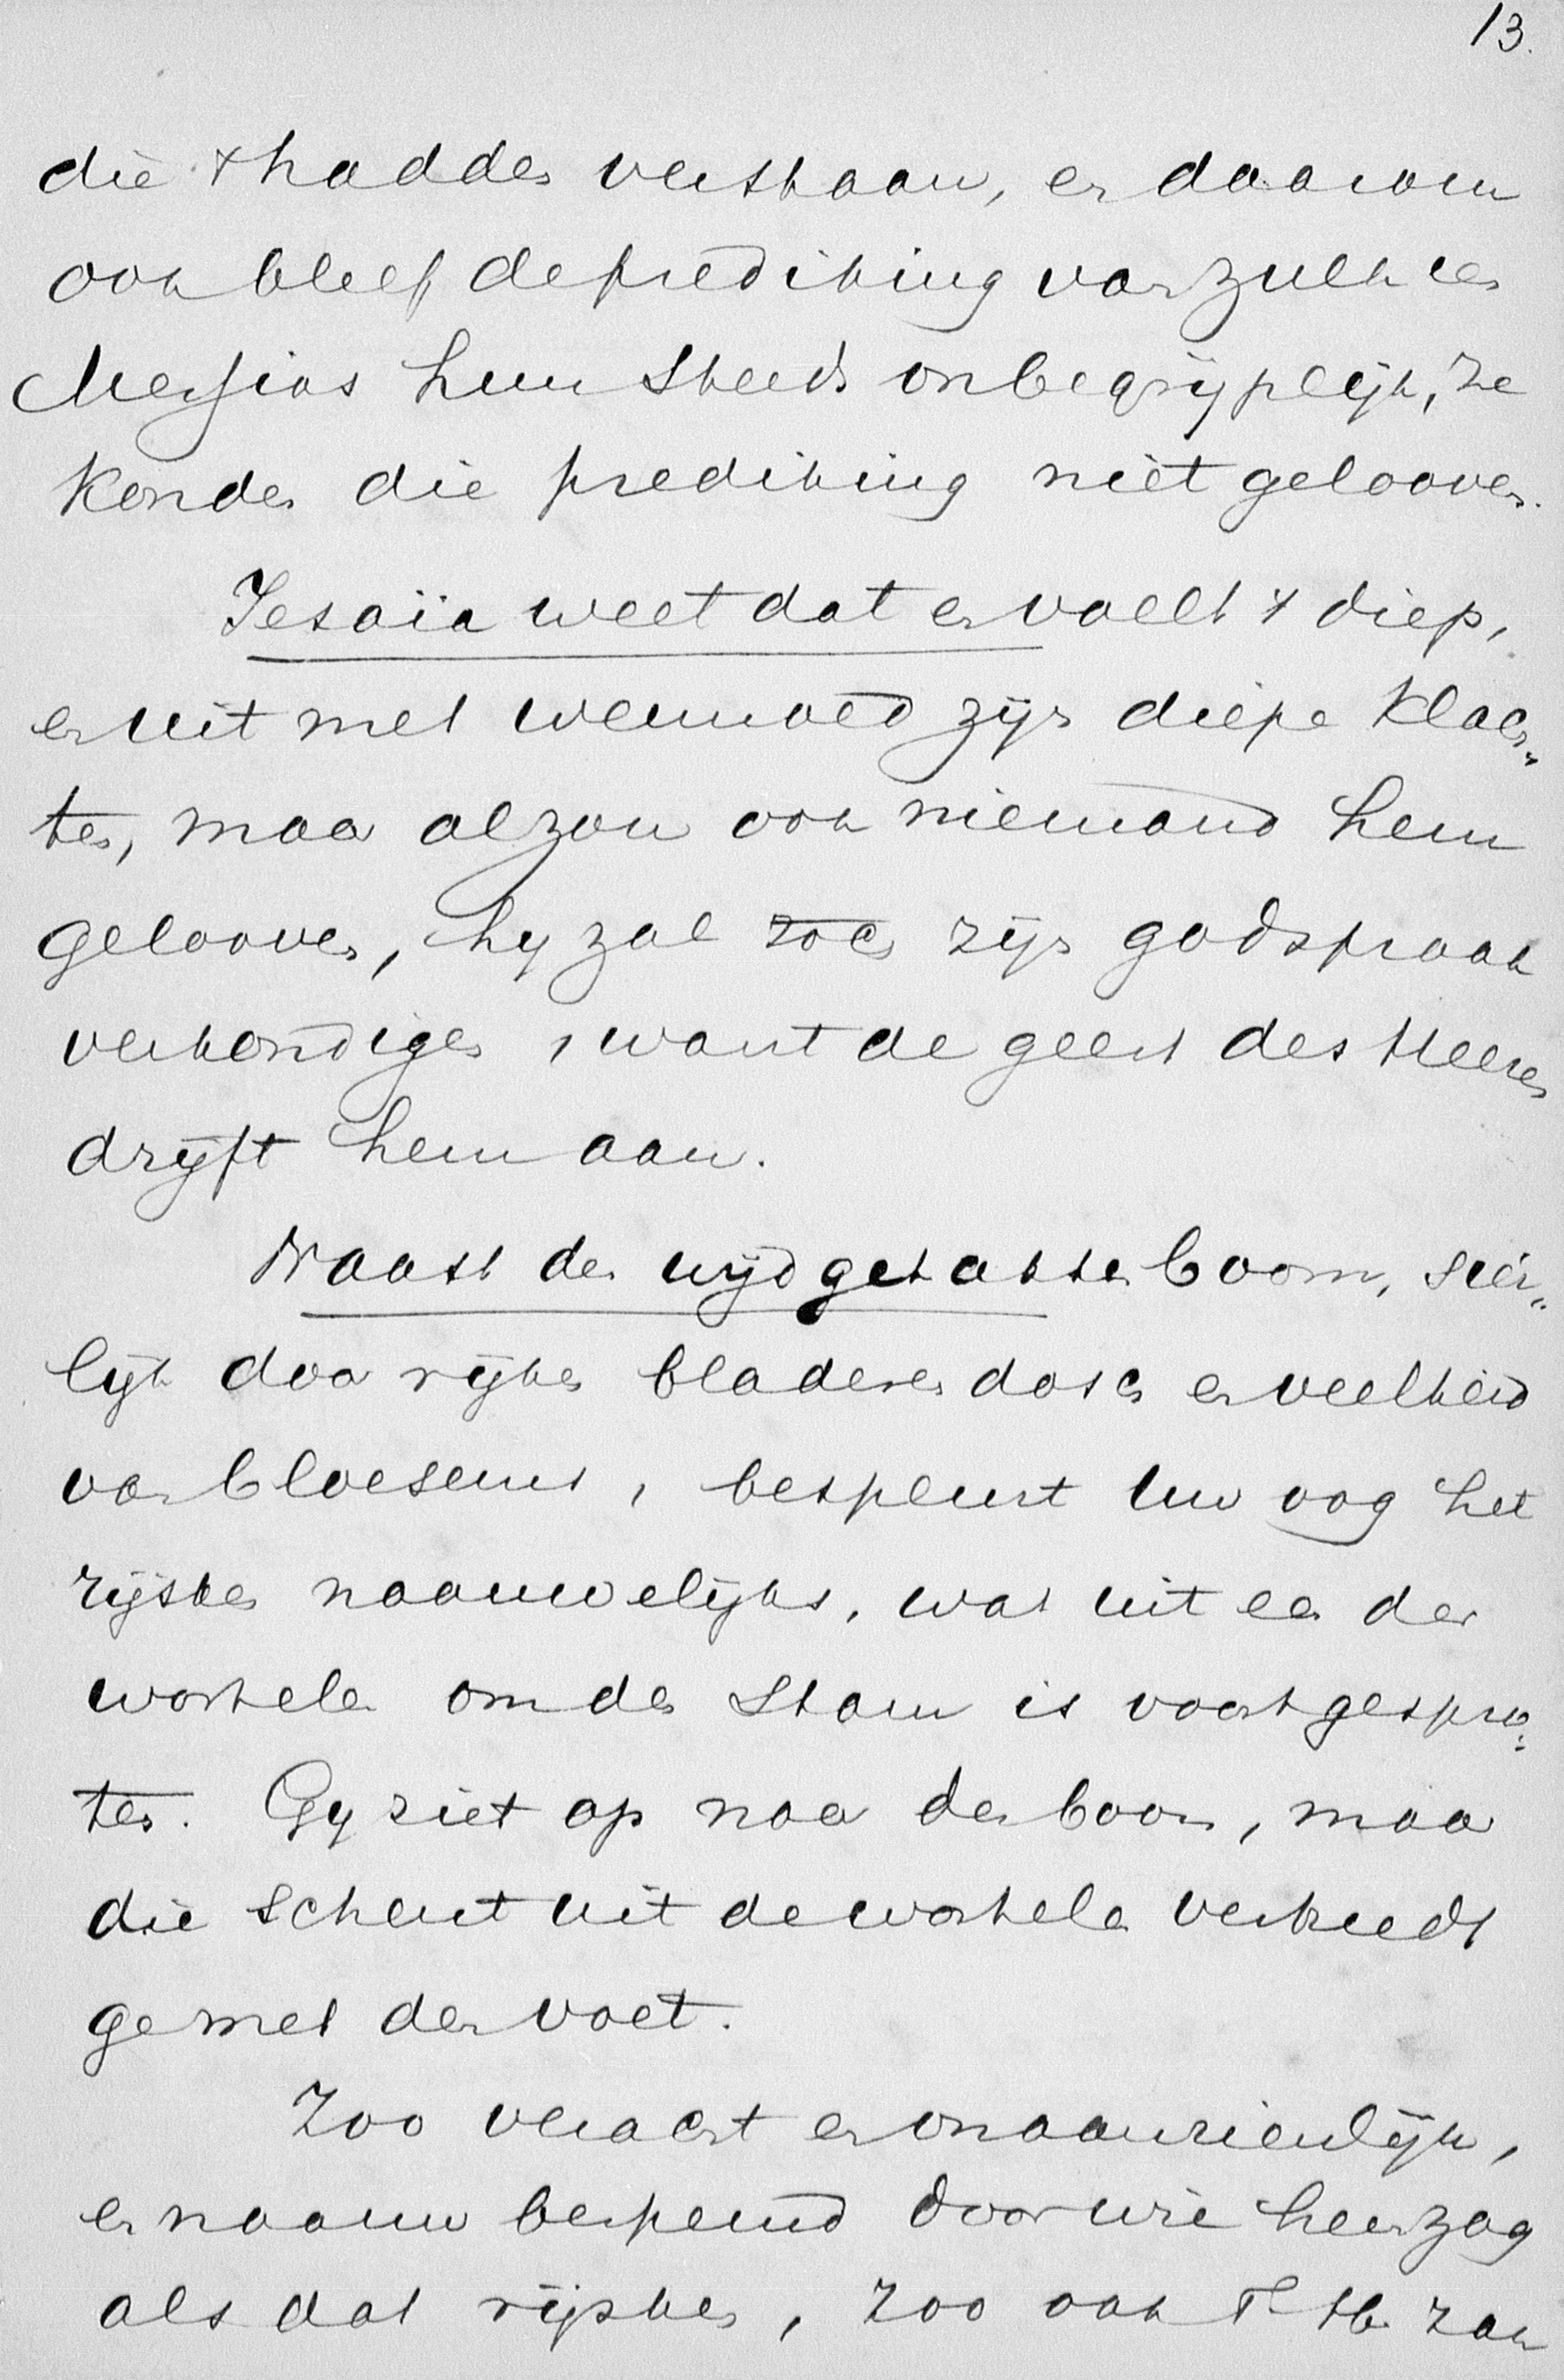 13.
die 't hadden verstaan, en daarom
ook bleef de prediking van zulk een
Messias hun steeds onbegrijpelijk, ze
konden die prediking niet gelooven.
Jesaïa weet dat en voelt 't diep,
en uit met weemoed zijn diepe klach„
ten, maar al zou ook niemand hem
gelooven, hy zal toch zijn godspraak
verkondigen, want de geest des Heeren
drijft hem aan.
Naast den wijdgetakten boom, sier„
lijk door rijken bladerendosch en veelheid
van bloesems, bespeurt Uw oog het
rijsken naauwelijks, wat uit een der
wortelen om den stam is voortgespro„
ten. Gy ziet op naar den boom, maar
die scheut uit de wortelen vertreedt
ge met den voet.
Zoo veracht en onaanzienlijk,
en naauw bespeurd door wie heen zag
als dat rijsken, zoo ook